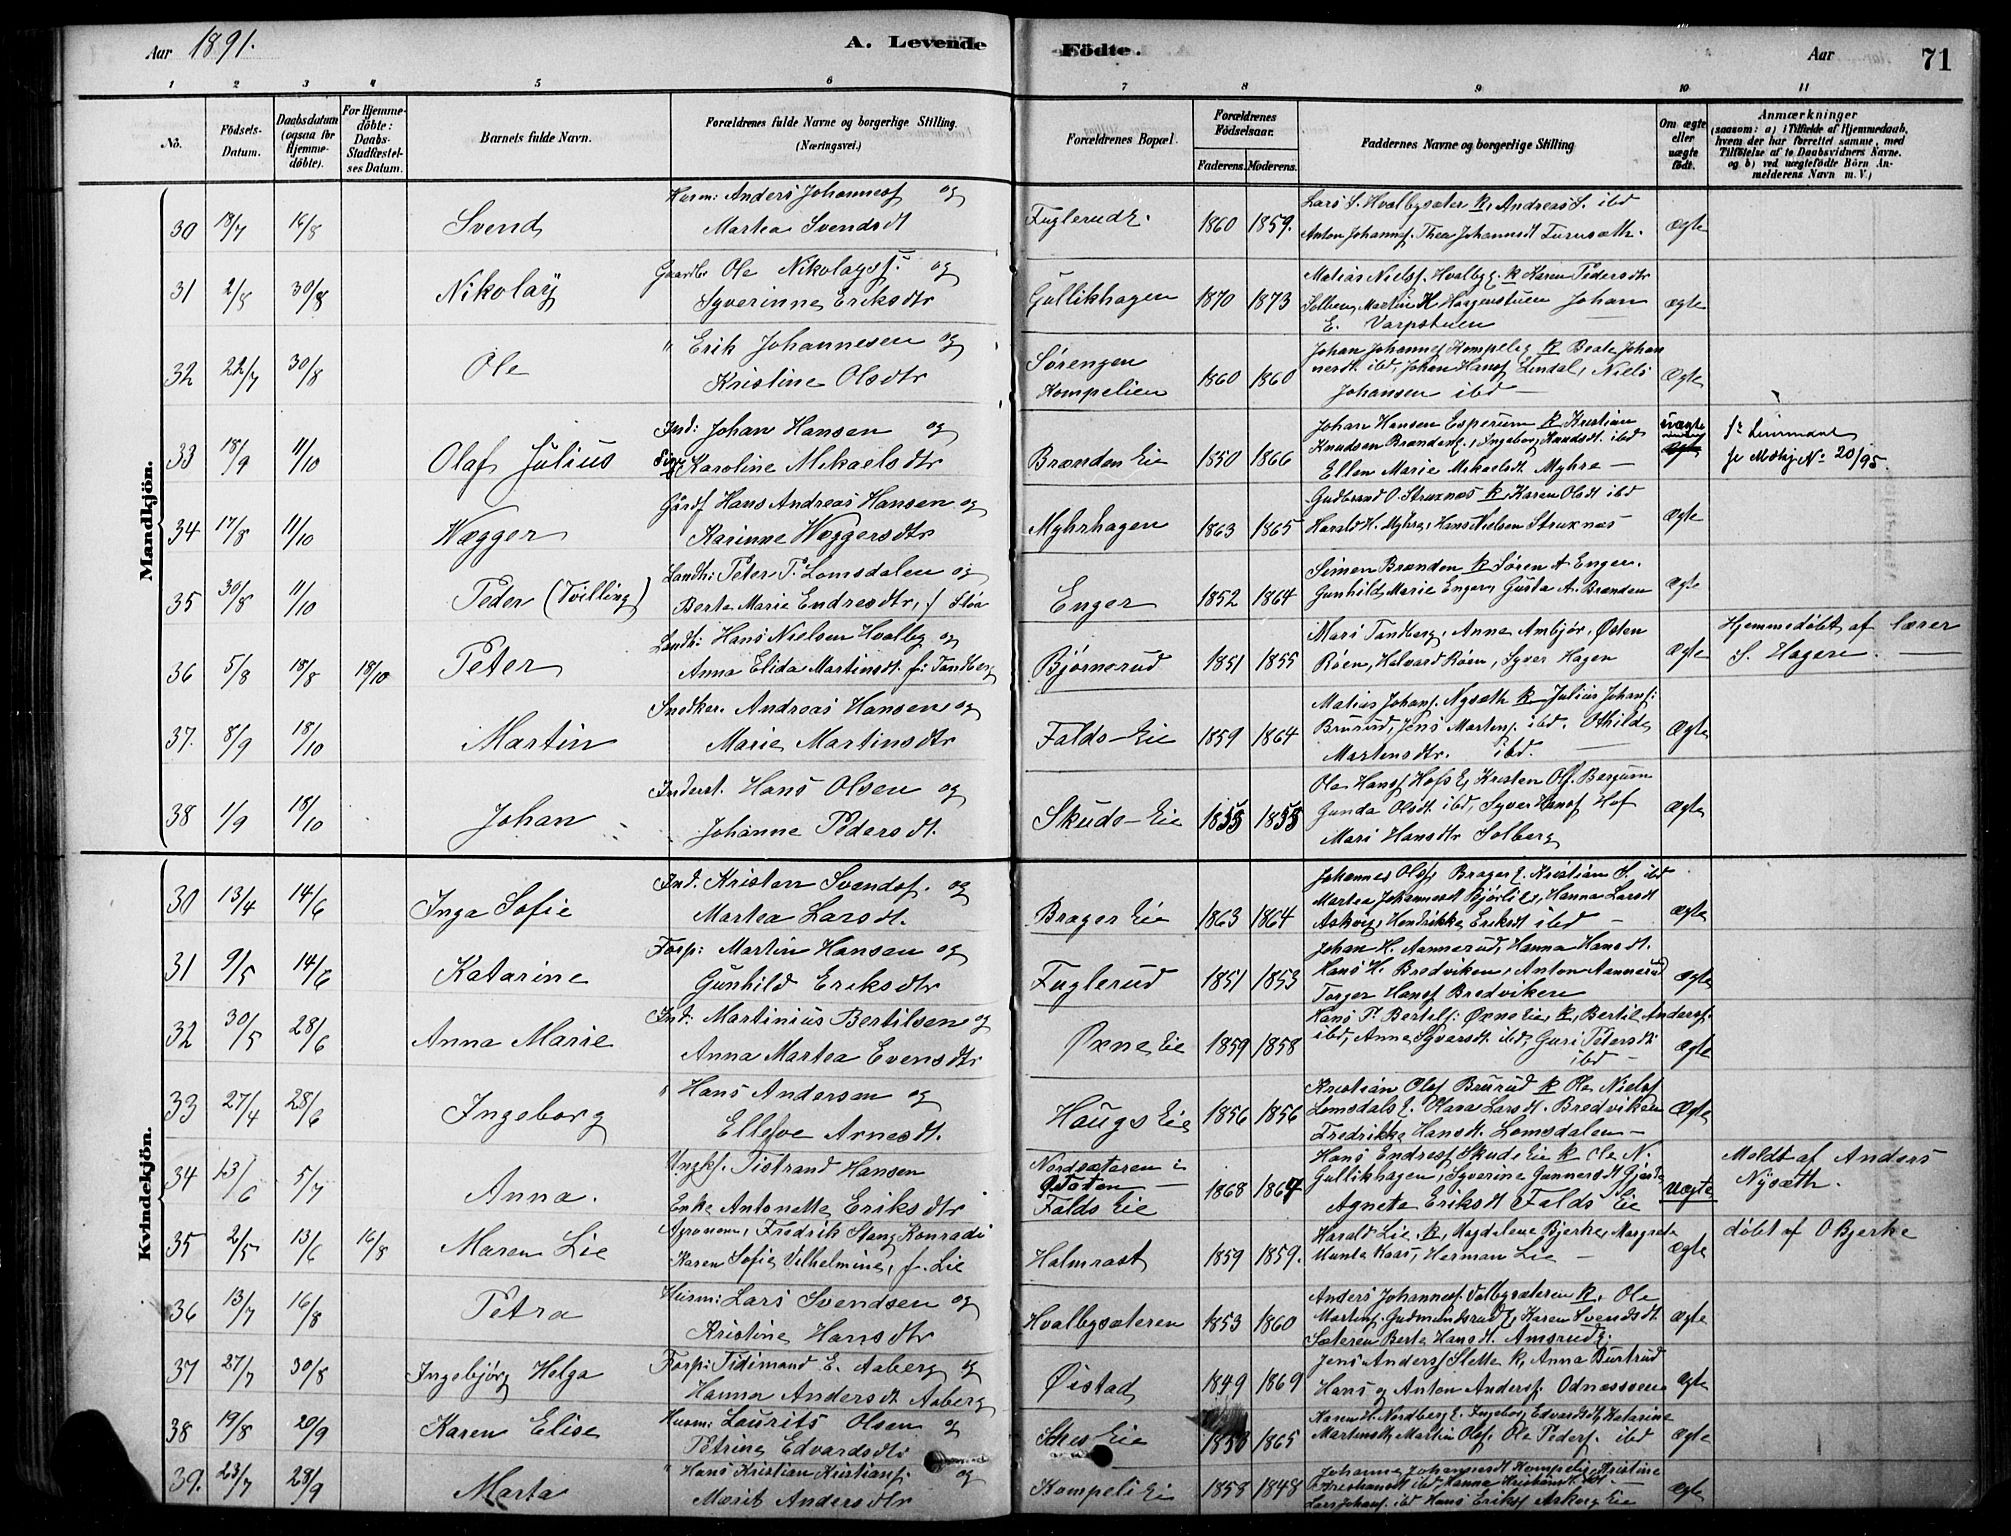 Aar 1891. A. Levende Födte. Aar 71
1 2 3 4 5 6 7 8 9 10 11
No. Födsels-Datum. Daabsdatum (ogsaa for Hjemmedöbte). For Hjemmedöbte: Daabs-Stadfæstelses Datum. Barnets fulde Navn. Forældrenes fulde Navne og borgerlige Stilling. (Næringsvei.) Forældrenes Bopæl. Forældrenes Födselsaar. Faderens. Moderens. Faddernes Navne og borgerlige Stilling Om ægte eller uægte födt. Anmærkninger (saasom: a) i Tilfælde af Hjemmedaab, hvem der har forrettet samme, med Tilföielse af to Daabsvidners Navne. og b) ved uægtefödte Börn Anmelderens Navn m. V.)
Mandkjön.
30 18/7 16/8 Svend Husm: Anders Johannesf og
Martea Svendsdt Fuglerud E. 1860 1859. Lars S. Hvalbysæter k, Andreas S. ibd
Anton Johannesf. Thea Johannsdt Turusæth. Ægte
31 2/8 30/8 Nikolay Gaardbr Ole Nikolaysf. og
Syverinne Eriksdtr Gullikhagen 1870 1873 Matias Nielsf. Hvalbye. k Karen Pedersdtr
Solberg, Martin H Hagenstuen Johan
E. Varpstuen Ægte
32 22/7 30/8 Ole " Erik Johannesen og
Kristine Olsdtr Sørengen
Kompelien 1860 1860 Johan Johannesf Kompelie k Beate Johan
nesdt ibd, Johan Hansf Lindal, Niels
Johansen ibd — Ægte
33 18/9 11/10 Olaf Julius Ind: Johan Hansen og
Karoline Mikaelsdtr Brænden Eie 1850 1866 Johan Hansen Esperum k Kristian
Knudsen Brænden E., Ingeborg Knudsdt. ibd
Ellen Marie Mikaelsdt Myhre — uægte
34 17/8 11/10 Wægger Gårdf Hans Andreas Hansen og
Karinne Wæggersdtr Myhrhagen 1863 1865 Gudbrand O. Struxnæs k, Karen Olsdt ibd
Harald H. Myhre, Hans Nielsen Struxnæs Ægte
35 30/8 11/10 Peder (Tvilling) Landh: Peter P. Lomsdalen og
Berte Marie Endresdtr, f Enger 1852 1864 Simen Brænden k Søren A Enger.
Gunhild Marie Enger, Gusta A. Brænden Ægte
36 5/8 18/8 18/10 Peter Landb: Hans Nielsen Hvalby og
Anna Elida Martinsdt. f: Tandberg Bjørnerud 1851 1855 Mari Tandberg, Anne Ambjør, Østen
Røen, Halvard Røen, Syver Hagen Ægte Hjemmedøbt af lærer
S. Hagen. —
37. 8/9 18/10 Martin Snedker. Andreas Hansen og
Marie Martinsdtr Falds-Eie 1859 1864 Matias Johansf. Nysæth k Julius Johansf:
Brurud, Jens Martinsf. ibd. Othilde
Martensdtr. ibd. Ægte
38 1/9 18/10 Johan Inderst. Hans Olsen og
Johanne Pedersdt. Skuds-Eie 1855 1858 Ole Hansf Hofs E, Kristen Olf. Bergum
Gunda Olsdt ibd, Syver Hansf Hof
Mari Hansdtr Solberg Ægte
Kvindekjön.
30 13/4 14/6 Inga Sofie Ind. Kristen Svendsf. og
Martea Larsdt. Brager Eie 1863 1864 Johannes Olsf. Brager E. Kristian S. ibd
Martea Johannesdt Bjørlie, Hanna Larsdt
Askvig, Hendrikke Eriksdt ibd — Ægte
31 9/5 14/6 Katarine Forp: Martin Hansen og
Gunhild Eriksdtr Fuglerud 1851 1853 Johan H. Aannerud, Hanna Hansdt.
Hans H. Bredviken, Anton Aannerud
Torger Hansf Bredviken Ægte
32 30/5 28/6 Anna Marie Ind. Martinius Bertilsen og
Anna Martea Evensdtr Øxne Eie 1859 1858 Hans P. Bertelsf: Øxne Eie, k, Bertil Andersf.
ibd, Anne Syversdt ibd, Guri Petersdt.
ibd — Ægte
33 27/4 28/6 Ingeborg " Hans Andersen og
Ellefve Arnesdt. Haugs Eie 1856 1856 Kristian Olsf Brurud k Ole Nielsf
Lomsdals E. Olava Larsdt. Bredviken
Fredrikke Hansdt. Lomsdalen — Ægte
34 13/6 5/7 Anna. Ungkf. Tistrand Hansen
Enke Antonette Eriksdtr Nordsæteren i
Ø. Toten —
Falds Eie 1868 1864 Hans Endresf Skuds Eie k Ole N.
Gullikhagen, Syverine Gunnersdt
Agnete Eriksdt Falds Eie Uægte Meldt af Anders
Nysæth.
35 2/5 13/6 16/8 Maren Lie Agronom, Fredrik Stang Konradi
Karen Sofie Vilhelmine, f. Lie Holmrast 1859 1859. Harald Lie, k, Magdalene Bjerke, Margrete
Munte Kaas, Herman Lie — Ægte døbt af O Bjerke
36 13/7 16/8 Petra Husm: Lars Svendsen og
Kristine Hansdtr Hvalbysæteren 1853 1860 Anders Johannesf. Valbysæteren k, Ole
Martinsf. Gudmundsrud E, Karen Svendsdt.
Sæteren Berte Hansdt. Amsrud E. Ægte
37 27/7 30/8 Ingebjørg Helga Forp: Tidimand E. Aaberg og
Hanna Andersdt Aaberg Øistad 1849 1869 Jens Andersf Slette k, Anna Burtrud
Hans og Anton Andersf. Odnæssven Ægte
38 19/8 20/9 Karen Elise Husm: Laurits Olsen og
Petrine Edvardsdtr Eie 1850 1865 Karen H. Nordberg E. Ingeborg Edvardsdt, Katarine
Martinsdt, Martin Olsf. Ole Pedersf. ibd Ægte
39. 23/7 28/9 Marta " Hans Kristian Kristiansf. og
Marit Andersdtr Kompeli Eie 1858 1848 Johanne Johannesdt Kompelie, Kristine
Kristiansdt ibd, Hanna Kristiansdt ibd —
Lars Johansf. ibd Hans Eriksf Askvig Eie Ægte